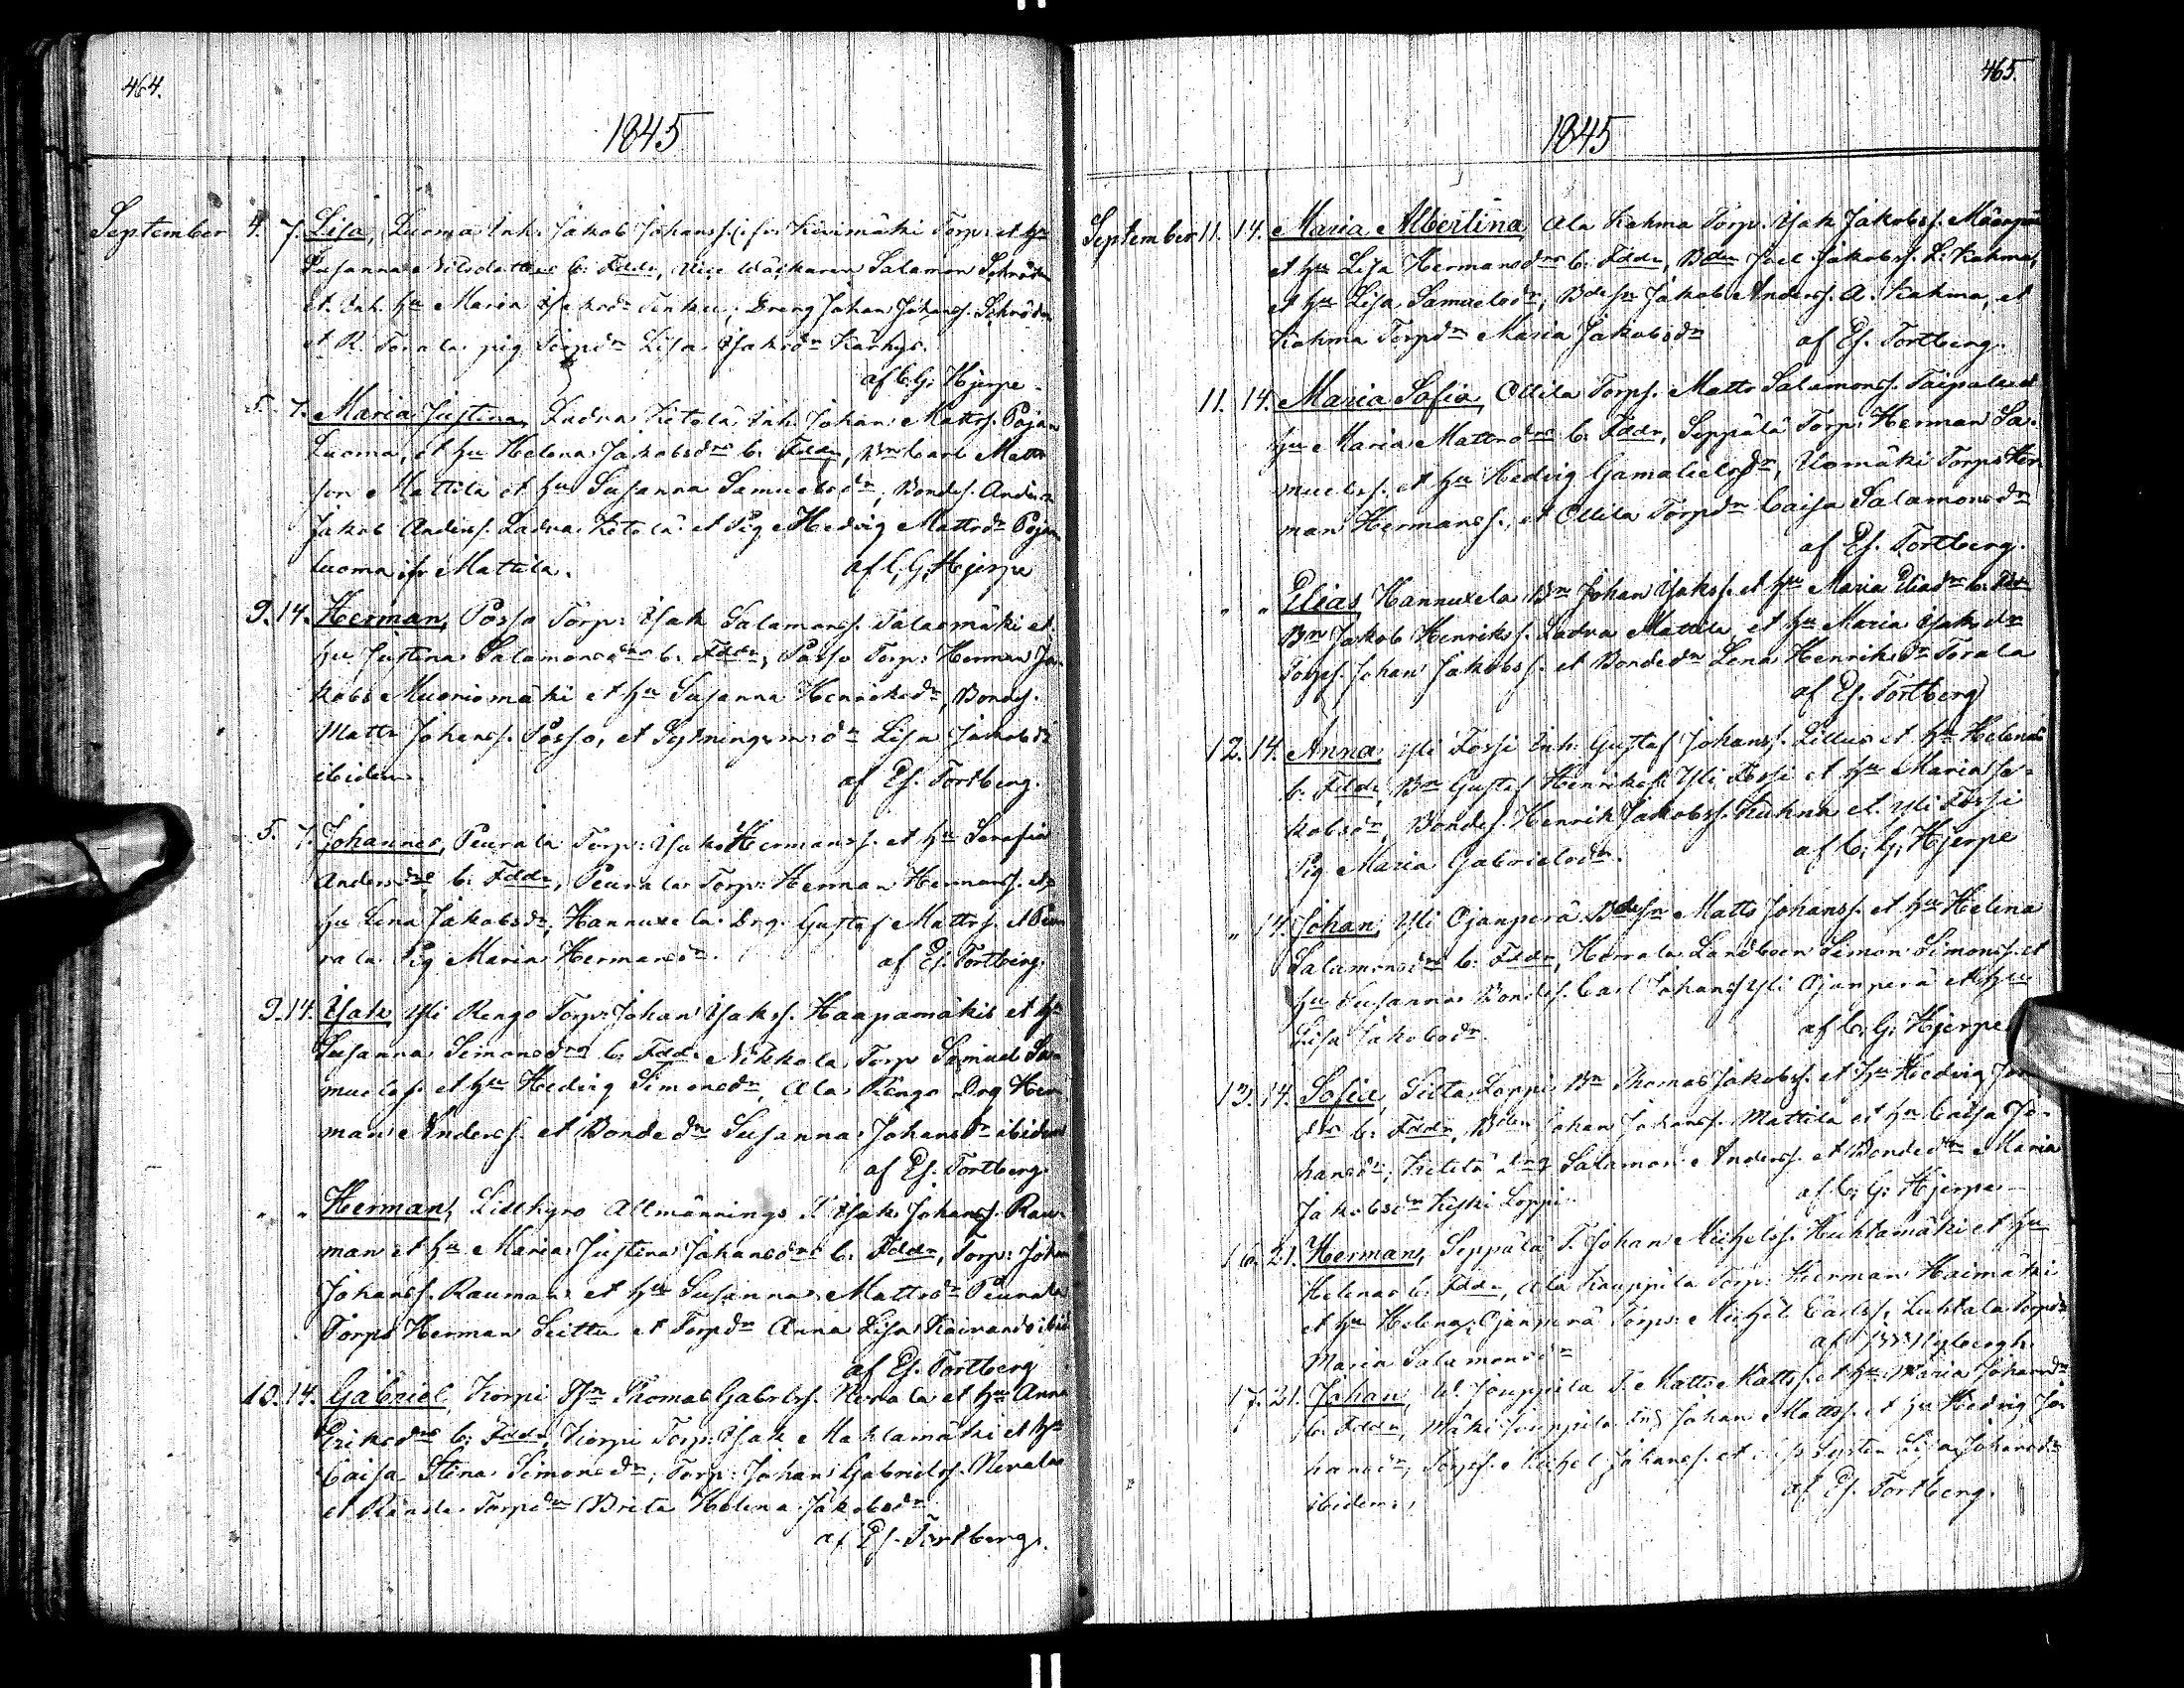 464.
1845
September 4. 7. Lisa, Luoma Inh. Jakob Johanss. Kivimäki Torp. et hu
Susanna Nilsdotters b: Fddr, Salamon Schröder
et Inh. hu Maria Dreng Johan Johanss. Schröder
et R. Torala pig Torpdr Lisa Isaksdr Karhu.
af C. G. Hjerpe
5. 7. Maria Justina, Ladva Ketola Inh. Johan Mattss. Pojan
Luoma, et hu Helena Jakobsdrs b: Fddr, Bn Carl Matts
son Mattila et hu Susanna Samuelsdr, Bondes. Anders
Jakob Anderss. Ladva Ketola et Pig Hedvig Mattsdr Pojan
luoma Mattila. af C. G. Hjerpe
9. 14. Herman, Posso Torp: Isak Salamonss. Talasmäki et
hu Justina Salamonsdrs b: Fddr, Posso Torp: Herman Ja-
kobs Muoniomäki et hu Susanna Henriksdr, Bondes.
Matts Johanss. Posso, et Sytningsm: dr Lisa Jakobsdr
ibidem. af Es. Tortberg.
5. 7. Johannes, Peurala Torp: Isak Hermanss. et hu Serafia
Andersdrs b: Fddr, Peurala Torp: Herman Hermanss. et
hu Lena Jakobsdr, Hannuxela Drg. Gustaf Mattss. et Peu
rala Pig Maria Hermansdr. af Es. Tortberg.
9. 14. Isak, Yli Rengo Torp: Johan Isakss. Haapamäkis et hu
Susanna Simonsdrs b: Fddr Nikkola Torp Samuel Sa-
muelss. et hu Hedvig Simonsdr, Ala Rengo Drg Her
man Anderss. et Bondedr Susanna Johansdr ibidem
af Es. Tortberg.
" " Herman, Lillkyro Allmännings T. Isak Johanss. Rau-
man et hu Maria Justina Johansdrs b: Fddr, Torp: Johan
Johanss. Rauman et hu Susanna Mattsdr Peurala
Torps Herman Seittu et Torpdr Anna Lisa
af Es. Tortberg
10. 14. Gabriel, Korpi Thomas Gabrlss. Nevala et hu Anna
Eriksdrs b: Fddr, Korpi Torp: Isak Mahlamäki et hu
Caisa Stina Simonsdr, Torp: Johan Gabrielss. Nevala
et Torpdr Brita Helena Jakobsdr
af Es. Tortberg.
465
1845
September 11. 14. Maria Albertina, Ala Kahma Torp. Isak Jakobss.
et hu Lisa Hermansdrs b: Fddr, Bden Joel Jakobss. L. Kahma,
et hu Lisa Samuelsdr, Bdesn Jakob Anderss. A. Kahma, et
Kahma Torpdr Maria Jakobsdr af Es. Tortberg.
11. 14. Maria Sofia, Ollila Torps. Matts Salamonss. Taipale et
hu Maria Mattsdrs b: Fddr, Seppälä Torp: Herman Sa-
muelss. et hu Hedvig Gamalielsdr, Uomäki Torps Her
man Hermanss., et Ollila Torpdr Caisa Salamonsdr
af Es. Tortberg.
" " Elias, Hannuxela Bn Johan Isakss. et hu Maria Eliadr b: Fddr
Bn Jakob Henrikss. Ladva Mattila et hu Maria Isaksdr
Torps. Johan Jakobss. et Bondedr Lena Henriksdr Torala
af Es. Tortberg
12. 14. Anna, Yli Fossi Inh: Gustaf Johanss. Lillus et hu Helenas
b: Fddr, Bn Gustaf Henrikss. Yli Fossi et hu Maria Ja-
kobsdr, Bondes. Henrik Jakobss. Kuhna et Yli Fossi
Pig Maria Gabrielsdr. af C. G. Hjerpe
" 14. Johan, Yli Ojanperä Bdesn Matts Johanss. et hu Helena
Salamonsdrs b: Fddr, Herrala Landboen Simon Simonss. et
hu Susanna Bondes. Carl Johanss Yli Ojanperä et hu
Lisa Jakobsdr. af C. G. Hjerpe
13. 14. Sofia, Silta Loppi Bn Thomas Jakobss. et hu Hedvig
drs b: Fddr, Bden Johan Johanss. Mattila et hu Caisa Jo-
hansdr, Ketola drg Salamon Anderss. et Bondedr Maria
Jakobsdr Keski Loppi. af C. G. Hjerpe
16. 21. Herman, Seppälä T. Johan Michelss. Huhtamäki et hu
Helenas b: Fddr, Ala Kauppila Torp: Herman Haimäki
et hu Helena, Ojanperä Torps: Michel Carlss. Luhtala Torpdr
Maria Salamonsdr af Nybergh.
17. 21. Johan, W. Jouppila T. Matts Mattss. et hu Maria Johansdr
b: Fddr, Mäki Jouppila Johan Mattss. et hu Hedvig Jo-
hansdr, Torps. Michel Johanss. et Lisa Johansdr
ibidem. af Es. Tortberg.